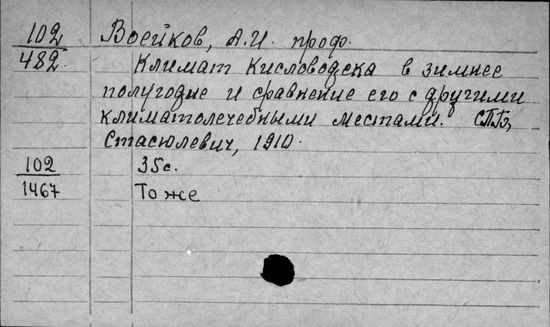 102 Воейков, А.И. проф.
482. Климат Кисловодска в зимнее
полугодие и сравнение его с другими
климатолечебными местами. СПБ,
Стасюлевич, 1910.
102 35с.
1467 То же